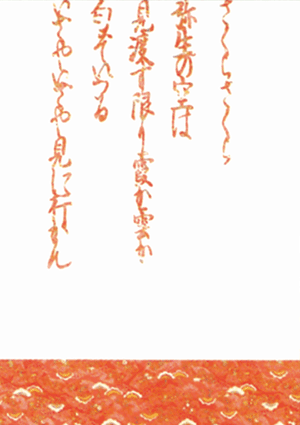 さくらさくら
弥生の空は
見渡す限り霞か雲か
匂ひぞいづる
いざやいざや見に行かん